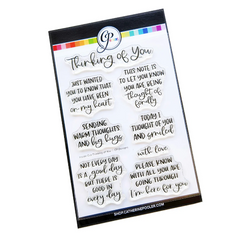 CP
Thinking of You
JUST WANTED
YOU TO KNOW THAT
YOU HAVE BEEN
on my heart
THIS NOTE IS
TO LET YOU KNOW
YOU ARE BEING
thought of
fondly
SENDING
WARM THOUGHTS
AND big hugs
TODAY I
THOUGHT OF YOU
AND smiled
NOT EVERY DAY
IS A good day
BUT THERE IS
GOOD IN
every day
with love
PLEASE KNOW
WITH ALL YOU ARE
GOING THROUGH
I'm here for you
SHOP.CATHERINEPOOLER.COM